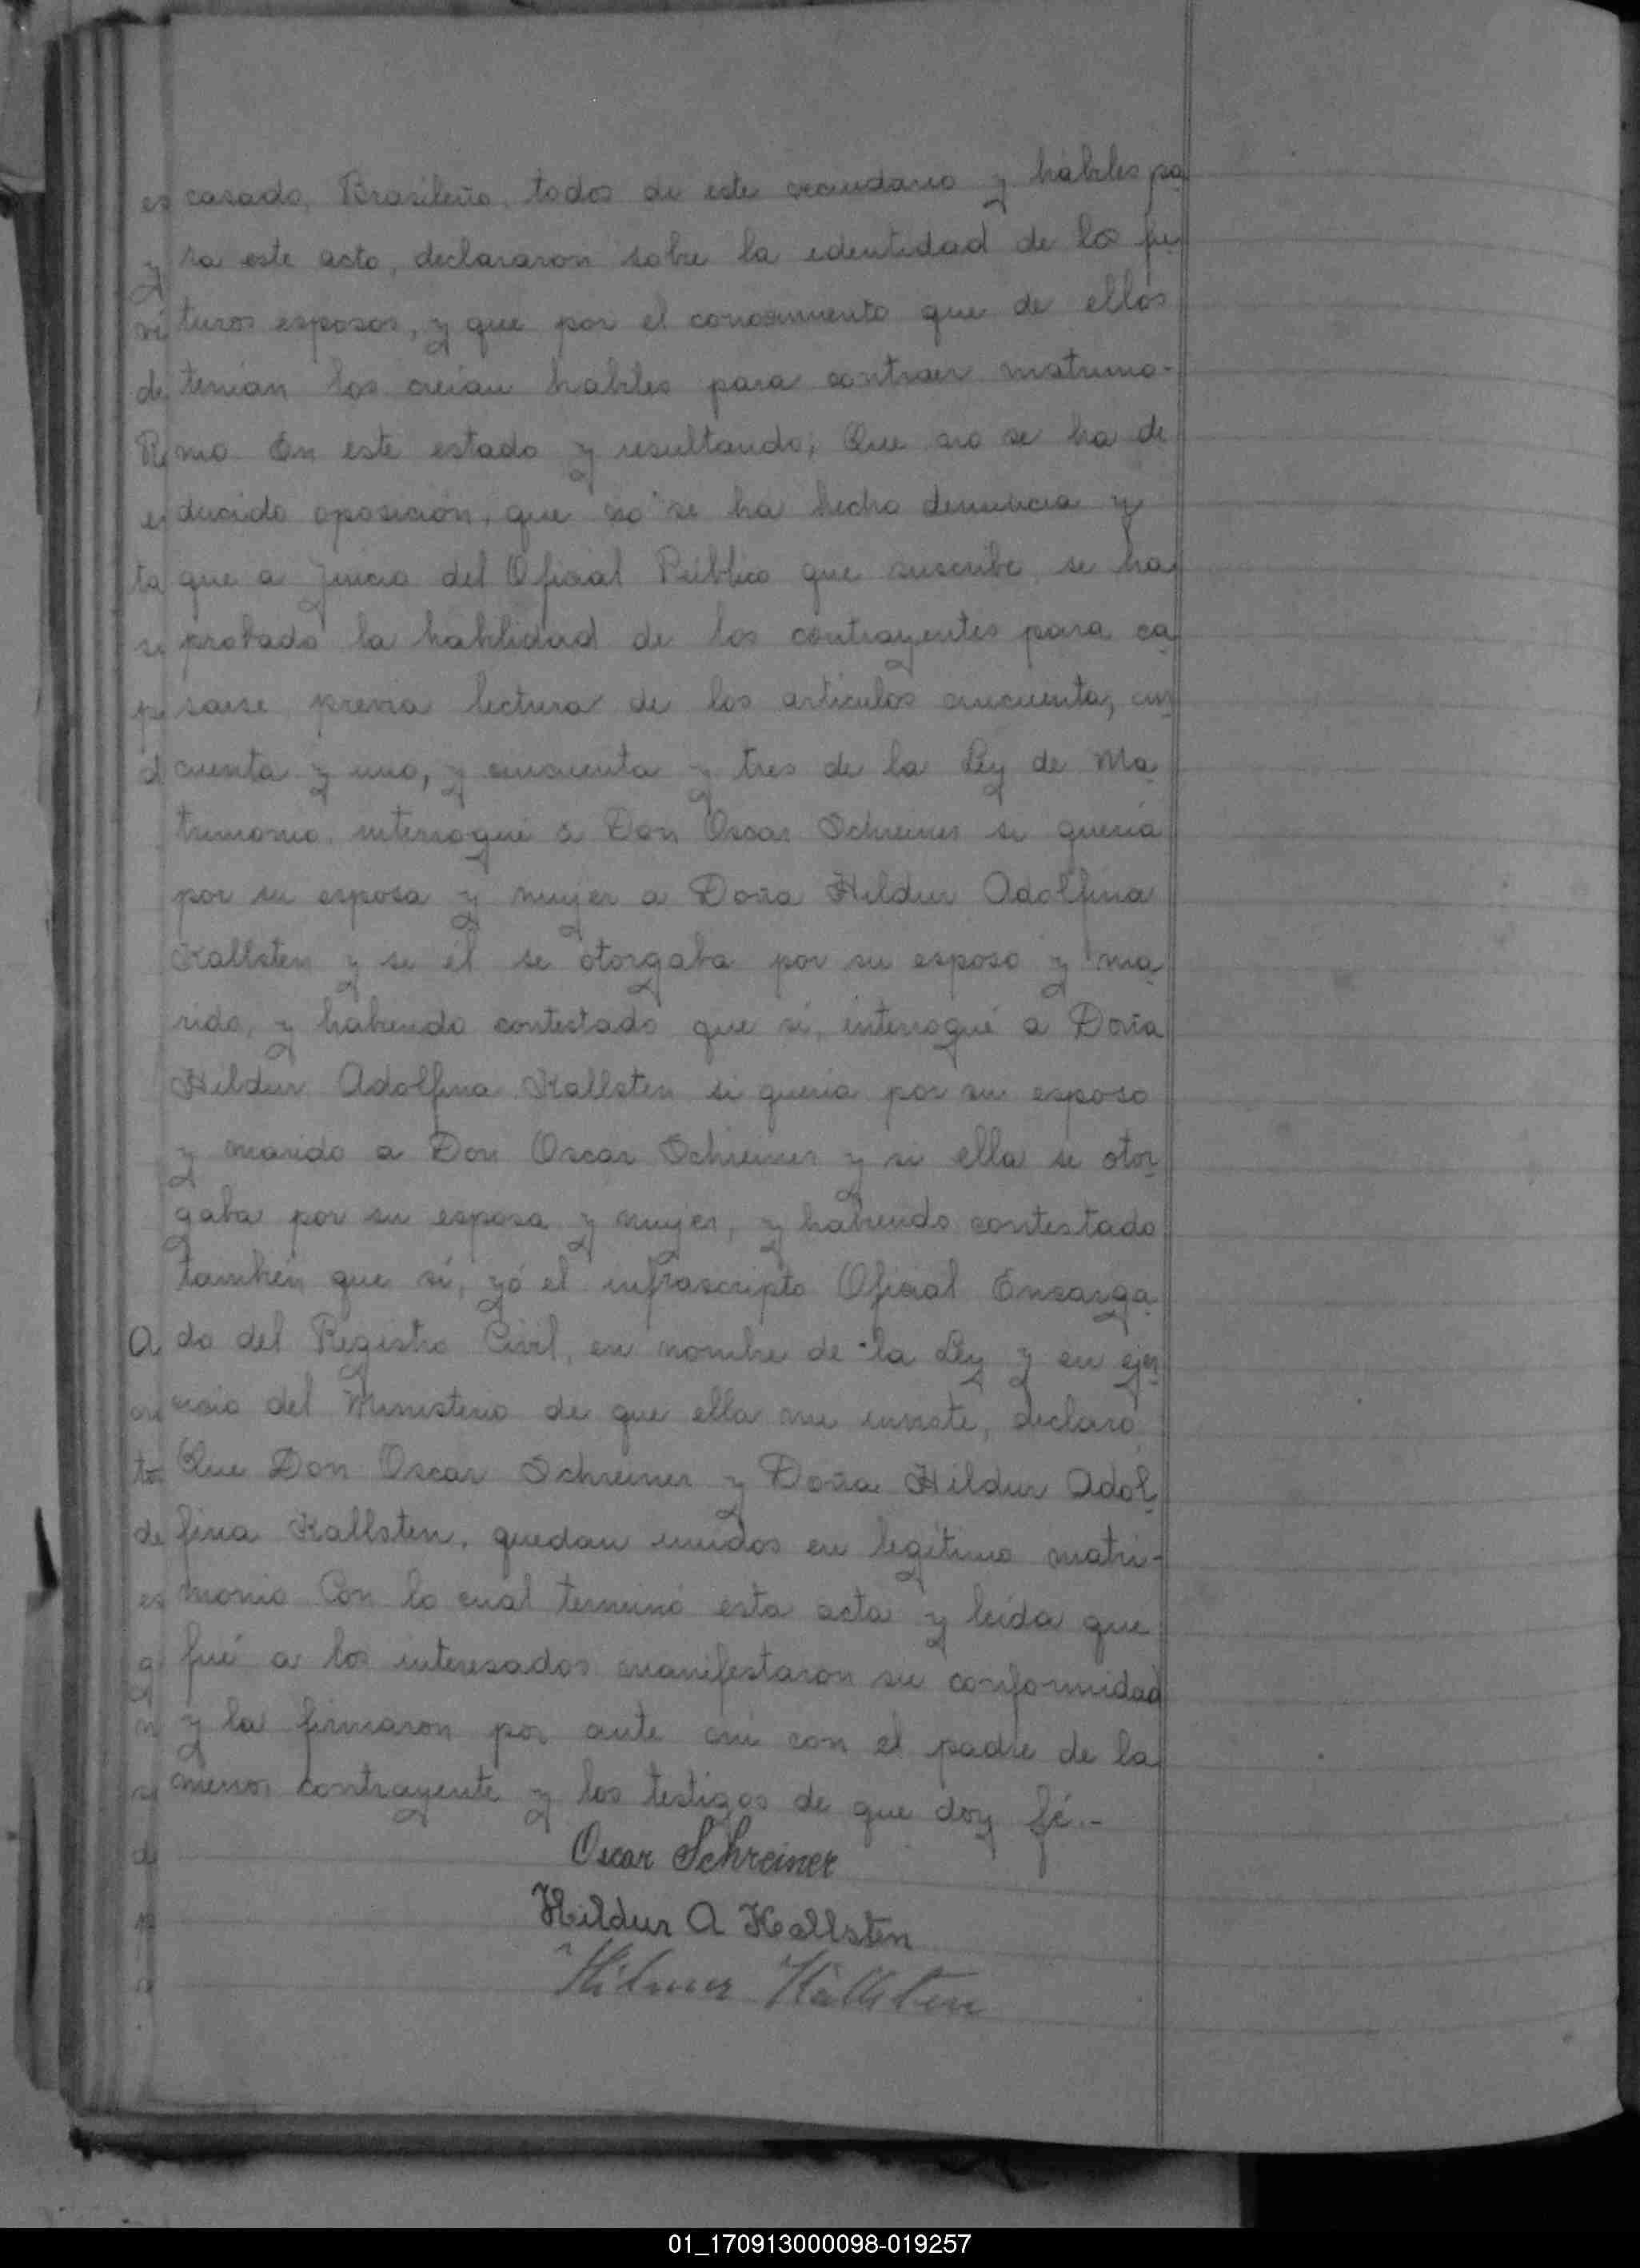 casado, Brasileño, todos de este vecindario y hábiles pa
ra este acto, declararon sobre la identidad de los fu
turos esposos, y que por el conocimiento que de ellos
tenian los creian habiles para contraer matrimo-
nio En este estado y resultando; Que no se ha de
ducido oposición, que no se ha hecho denuncia y
que a juicio del Oficial Público que suscribe se ha
probado la habilidad de los contrayentes para ca
sarse previa lectura de los artículos cincuenta, cin
cuenta y uno, y cincuenta y tres de la Ley de Ma
trimonio, interrogué a Don Oscar Schreiner si queria
por su esposa y mujer a Doña Hildur Adolfina
Kallsten y si él se otorgaba por su esposo y ma
rido, y habiendo contestado que sí, interrogué a Doña
Hildur Adolfina Kallsten si queria por su esposo
y marido a Don Oscar Schreiner y si ella se otor
gaba por su esposa y mujer, y habiendo contestado
también que sí, yó el infrascripto Oficial Encarga
do del Registro Civil, en nombre de la Ley y en ejer
cicio del Ministerio de que ella me inviste, declaro
Que Don Oscar Schreiner y Doña Hildur Adol
fina Kallsten, quedan unidos en legítimo matri-
monio Con lo cual terminó esta acta y leída que
fué a los interesados manifestaron su conformidad
y la firmaron por ante mi con el padre de la
menor contrayente y los testigos de que doy fé.-
Oscar Schreiner
Hildur A Kallsten
Hilmer Källsten
01_170913000098-019257